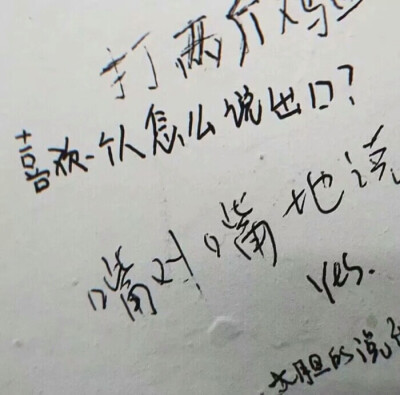 打两个鸡
喜欢一个人怎么说出口？
嘴对嘴地说
yes.
大胆的说